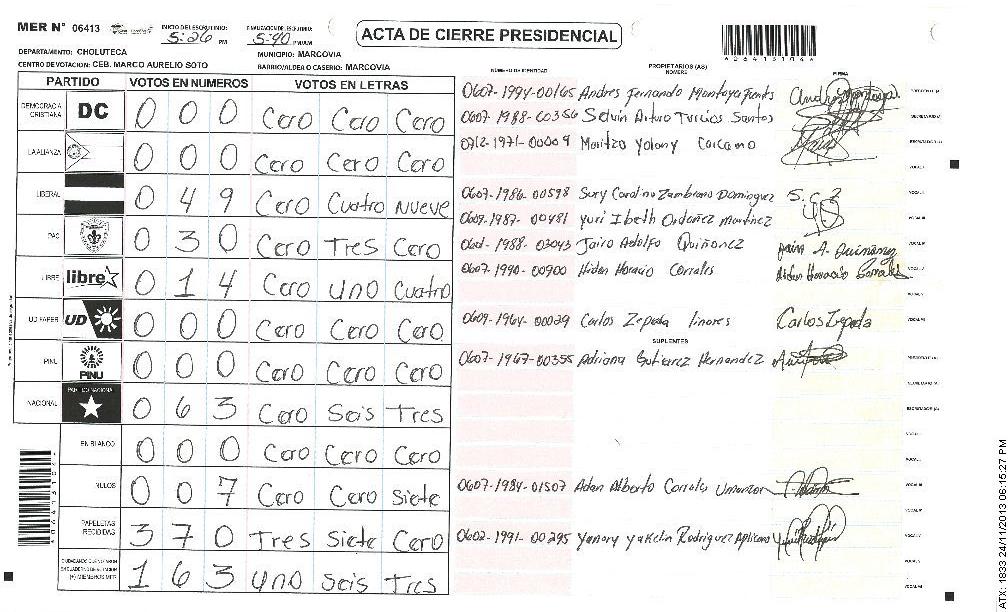 MER Nº 06413 INICIO DEL ESCRUTINIO: 5:26 PM FINALIZACION DEL ESCRUTINIO: 5:40 PM/AM ACTA DE CIERRE PRESIDENCIAL
DEPARTAMENTO: CHOLUTECA MUNICIPIO: MARCOVIA
CENTRO DE VOTACION: CEB. MARCO AURELIO SOTO BARRIO/ALDEA O CASERIO: MARCOVIA
PARTIDO VOTOS EN NUMEROS VOTOS EN LETRAS
DEMOCRACIA CRISTIANA DC 0 0 0 Cero Cero Cero
LA ALIANZA 0 0 0 Cero Cero Cero
LIBERAL 0 4 9 Cero Cuatro Nueve
PAC 0 3 0 Cero Tres Cero
LIBRE libre 0 1 4 Cero Uno Cuatro
UD FAPER UD 0 0 0 Cero Cero Cero
PINU PINU 0 0 0 Cero Cero Cero
NACIONAL PARTIDO NACIONAL 0 6 3 Cero Seis Tres
EN BLANCO 0 0 0 Cero Cero Cero
NULOS 0 0 7 Cero Cero Siete
PAPELETAS RECIBIDAS 3 7 0 Tres Siete Cero
CIUDADANOS QUE VOTARON EN CUADERNO DE VOTACION (+) MIEMBROS MER 1 6 3 Uno Seis Tres
NUMERO DE IDENTIDAD PROPIETARIOS (AS) NOMBRE FIRMA
0607-1994-00165 Andres Fernando Montoya
0607-1988-00350 Selvin Arturo Turcios Santos
0712-1971-00009 Maritza Yolany Carcamo
0607-1986-00598 Sury Carolina Zambrano Dominguez
0609-1987-00481 Yuri Ibeth Ordoñez Martinez
1988-03043 Jairo Adolfo Quiñonez
0607-1990-00900 Hidan Horacio Corrales
0609-1964-00029 Carlos Zepeda linares Carlos Zepeda
SUPLENTES
0607-1967-00355 Adriana Gutierrez Hernandez
0607-1984-01507 Adan Alberto Corrales Umanzor
0602-1991-00295 Yanory Yakelin Rodriguez Aplicano
ATX: 1833 24/11/2013 06:15:27 PM